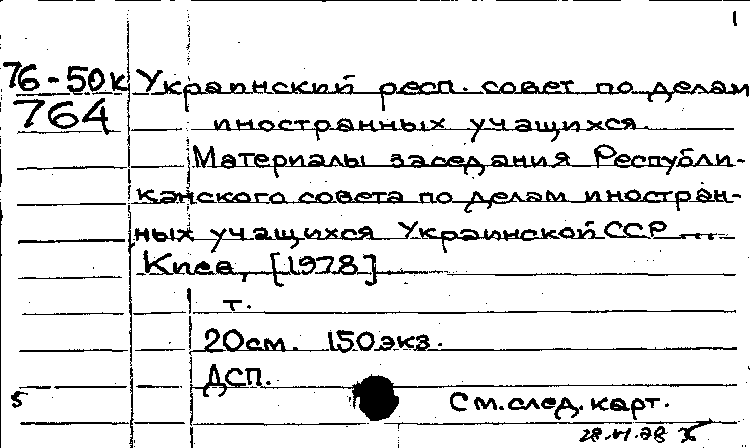 1
76-50к Украинский респ. совет по делам
764 иностранных учащихся.
Материалы заседания Республи-
канского совета по делам иностран-
ных учащихся Украинской ССР ...
Киев, [1978]
т.
20см. 150экз.
ДСП.
5 См. след. карт.